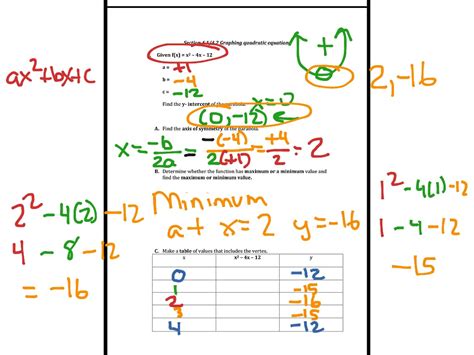 Section 4.1/4.2 Graphing quadratic equations
Given f(x) = x² – 4x – 12
a = +1
b = -4
c = -12
Find the y- intercept of the parabola. x=0
(0, -12)
A. Find the axis of symmetry of the parabola.
x = -b/2a = -(-4)/2(+1) = +4/2 = 2
B. Determine whether the function has maximum or a minimum value and
find the maximum or minimum value.
Minimum
at x=2 y=-16
C. Make a table of values that includes the vertex.
x x² – 4x – 12 y
0 -12
1 -15
2 -16
3 -15
4 -12
ax²+bx+c
2² -4(2) -12
4 - 8 -12
= -16
+
2, -16
1² -4(1) -12
1 -4 -12
-15